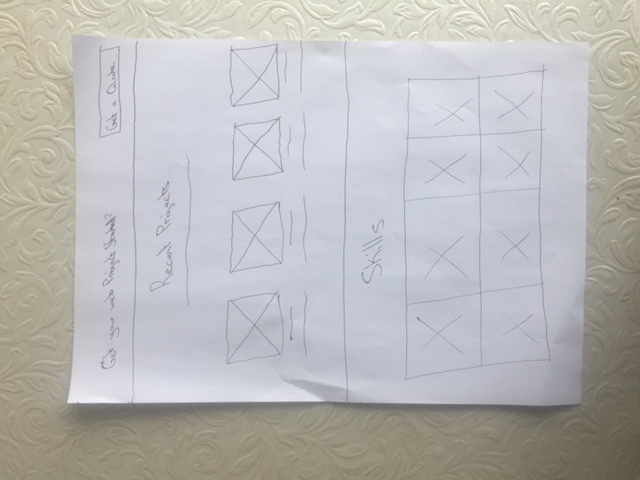 Get your web Project Started?
Get a Quote
Recent Projects.
Skills